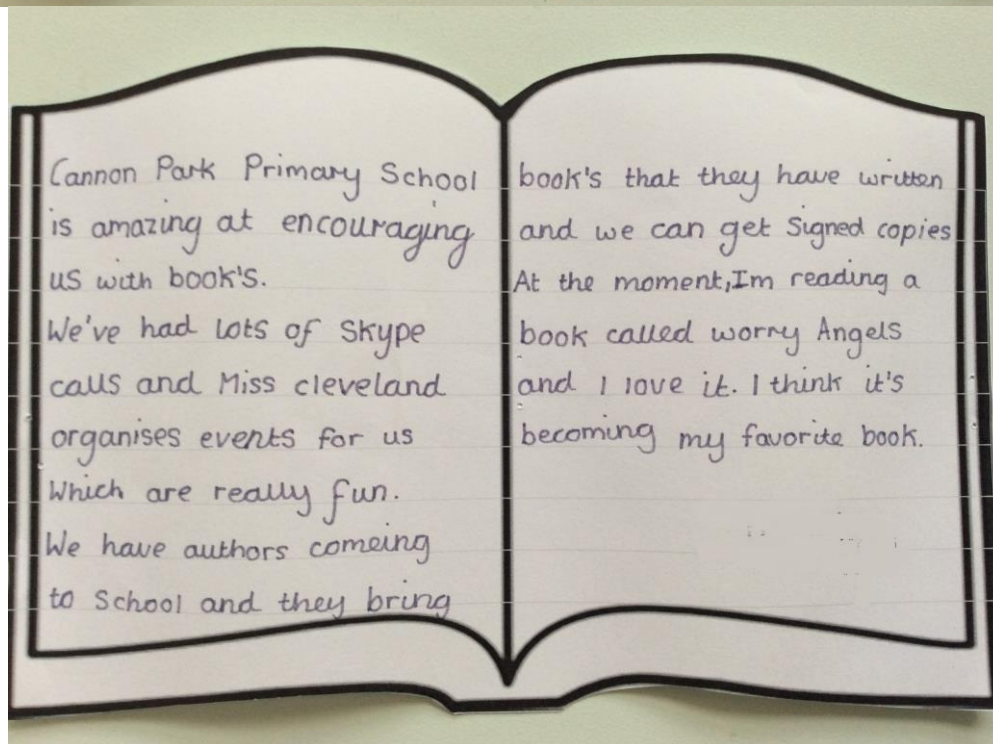 Cannon Park Primary School
is amazing at encouraging
us with book's.
We've had lots of Skype
calls and Miss cleveland
organises events for us
Which are really fun.
We have authors comeing
to School and they bring
book's that they have written
and we can get Signed copies
At the moment,Im reading a
book called worry Angels
and I love it. I think it's
becoming my favorite book.